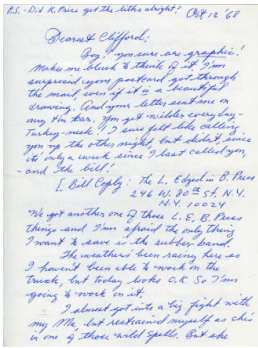 P.S. - Did K. Price get the liths alright?
Oct 12 '68
Dearest Clifford;
Boy! you sure are graphic!
Makes me blush to think of it. I'm
surprised your postcard got through
the mail even if it is a beautiful
drawing. And your letter sent me on
my ear. You get wilder everyday -
Turkey-neck! I sure felt like calling
you up the other night, but didn't, since
its only a week since I last called you,
- and the bill!
[Bill Coply: The L. Edged in B. Press
246 W. 80th St. N.Y.
N.Y. 10024
We got another one of those L.E.B. Press
things and I'm afraid the only thing
I want to save is the rubber-band.
The weathers been racing here so
I haven't been able to work on the
truck, but today looks O.K. So I'm
going to work on it.
I almost got into a big fight with
my Ma, but restrained myself as she's
in one of those wild spells. But she